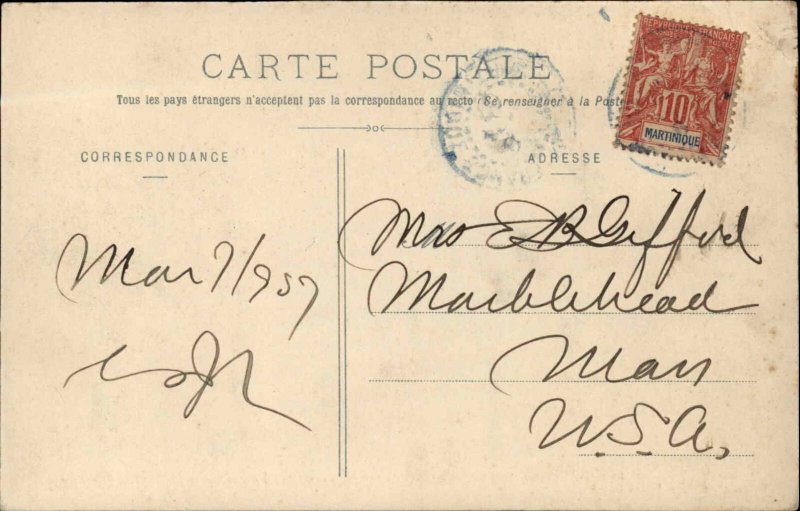 CARTE POSTALE
Tous les pays étrangers n'acceptent pas la correspondance au recto (Se renseigner à la Poste
CORRESPONDANCE
ADRESSE
RÉPUBLIQUE FRANÇAISE
10
MARTINIQUE
Mar 7/907
Mrs E B Gifford
Marblehead
Mass
U.S.A.